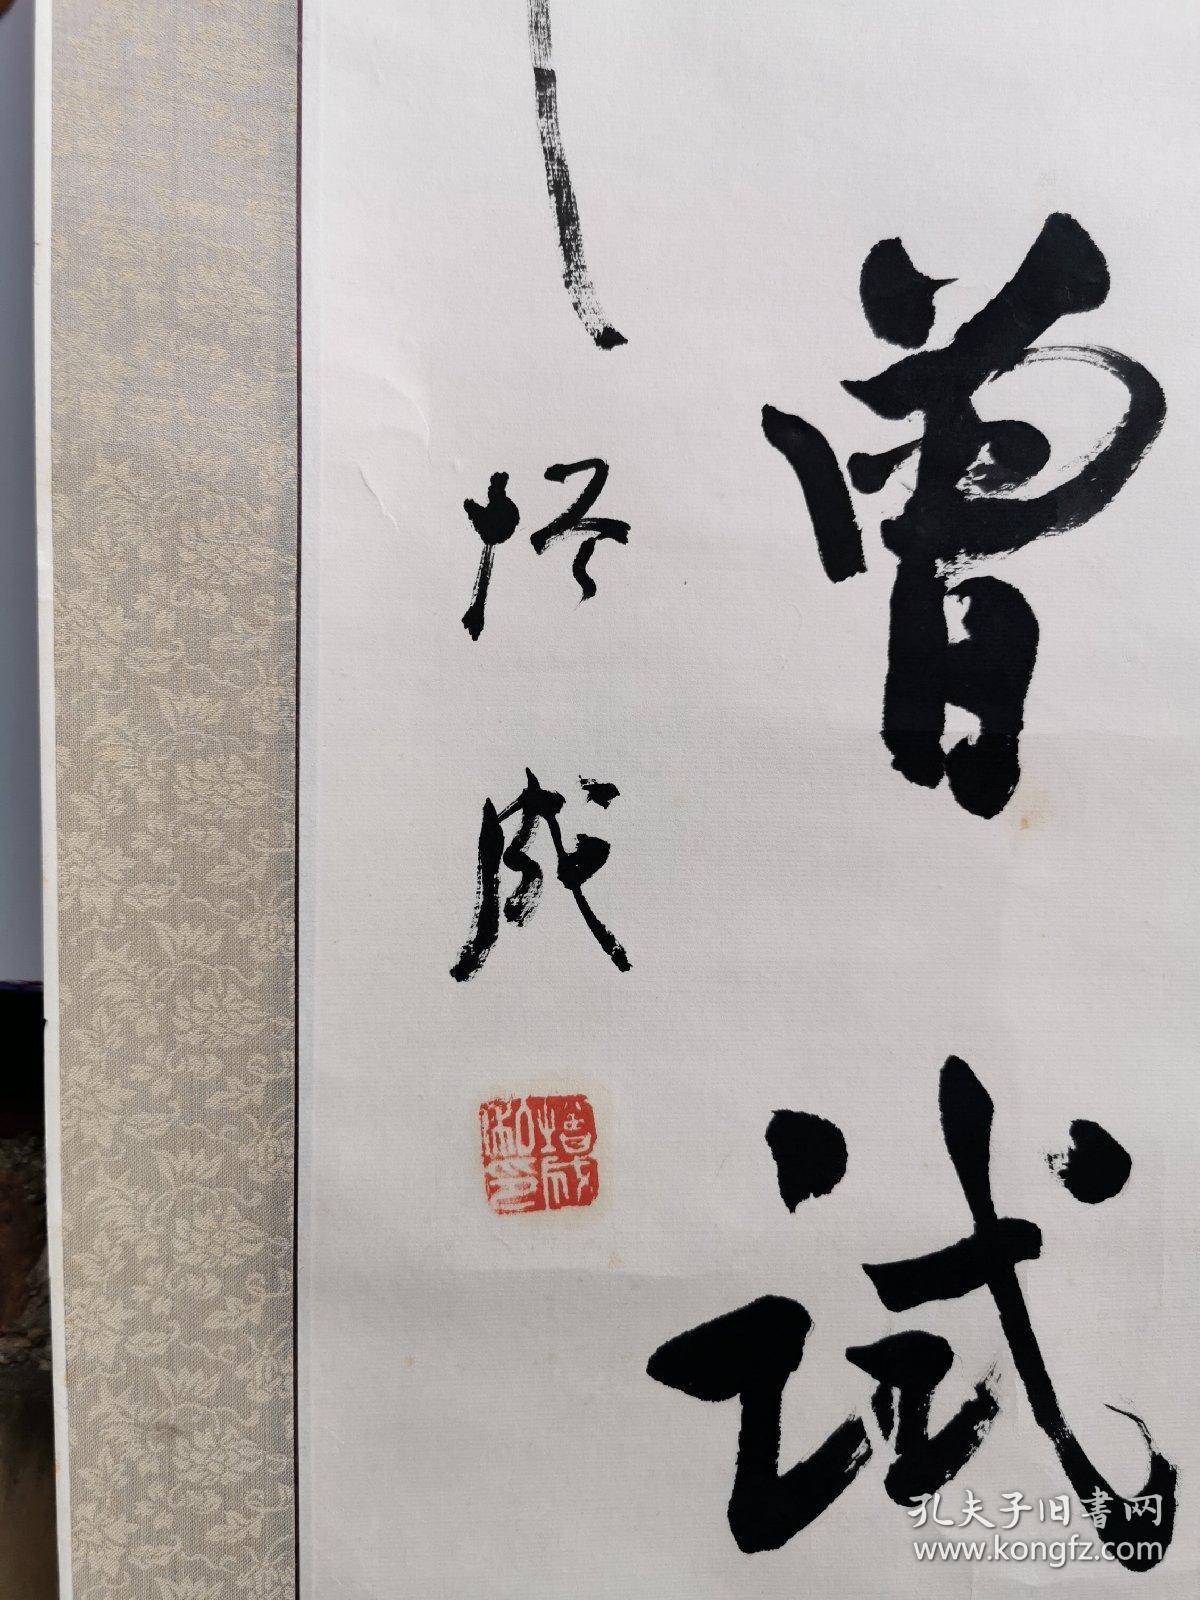 曾试
培成
孔夫子旧書网
www.kongfz.com